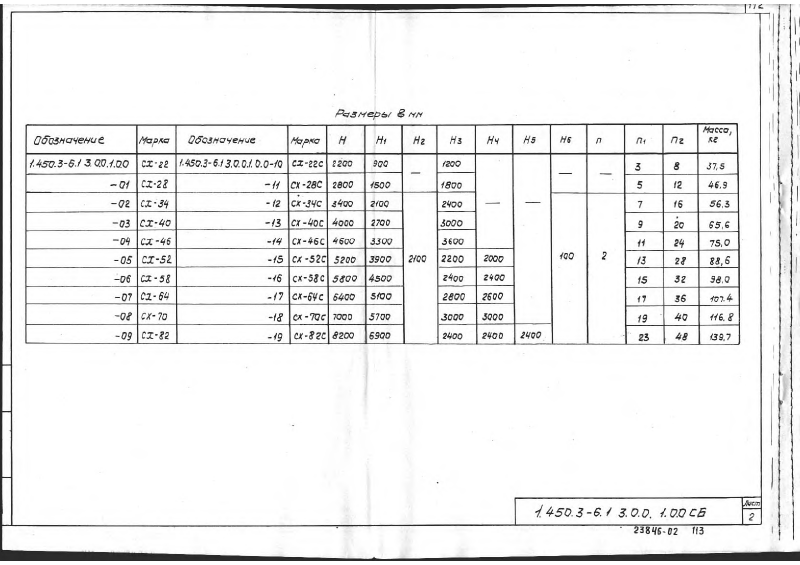 112
Размеры в мм
Обозначение Марка Обозначение Марка H H1 H2 H3 H4 H5 H6 п п1 п2 Масса, кг
1.450.3-6.1 3.0.0.1.0.0 СХ-22 1.450.3-6.1 3.0.0.1.0.0-10 СХ-22С 2200 900 — 1200 — — — — 3 8 37,5
-01 СХ-28 -11 СХ-28С 2800 1500 1800 5 12 46.9
-02 СХ-34 -12 СХ-34С 3400 2100 2100 2400 100 2 7 16 56.3
-03 СХ-40 -13 СХ-40С 4000 2700 3000 9 20 65,6
-04 СХ-46 -14 СХ-46С 4600 3300 3600 11 24 75,0
-05 СХ-52 -15 СХ-52С 5200 3900 2200 2000 13 28 88,6
-06 СХ-58 -16 СХ-58С 5800 4500 2400 2400 15 32 98.0
-07 СХ-64 -17 СХ-64С 6400 5100 2800 2600 17 36 107.4
-08 СХ-70 -18 СХ-70С 7000 5700 3000 3000 19 40 116,8
-09 СХ-82 -19 СХ-82С 8200 6900 2400 2400 2400 23 48 139,7
1.450.3-6.1 3.0.0. 1.0.0 СБ
Лист
2
23846-02 113